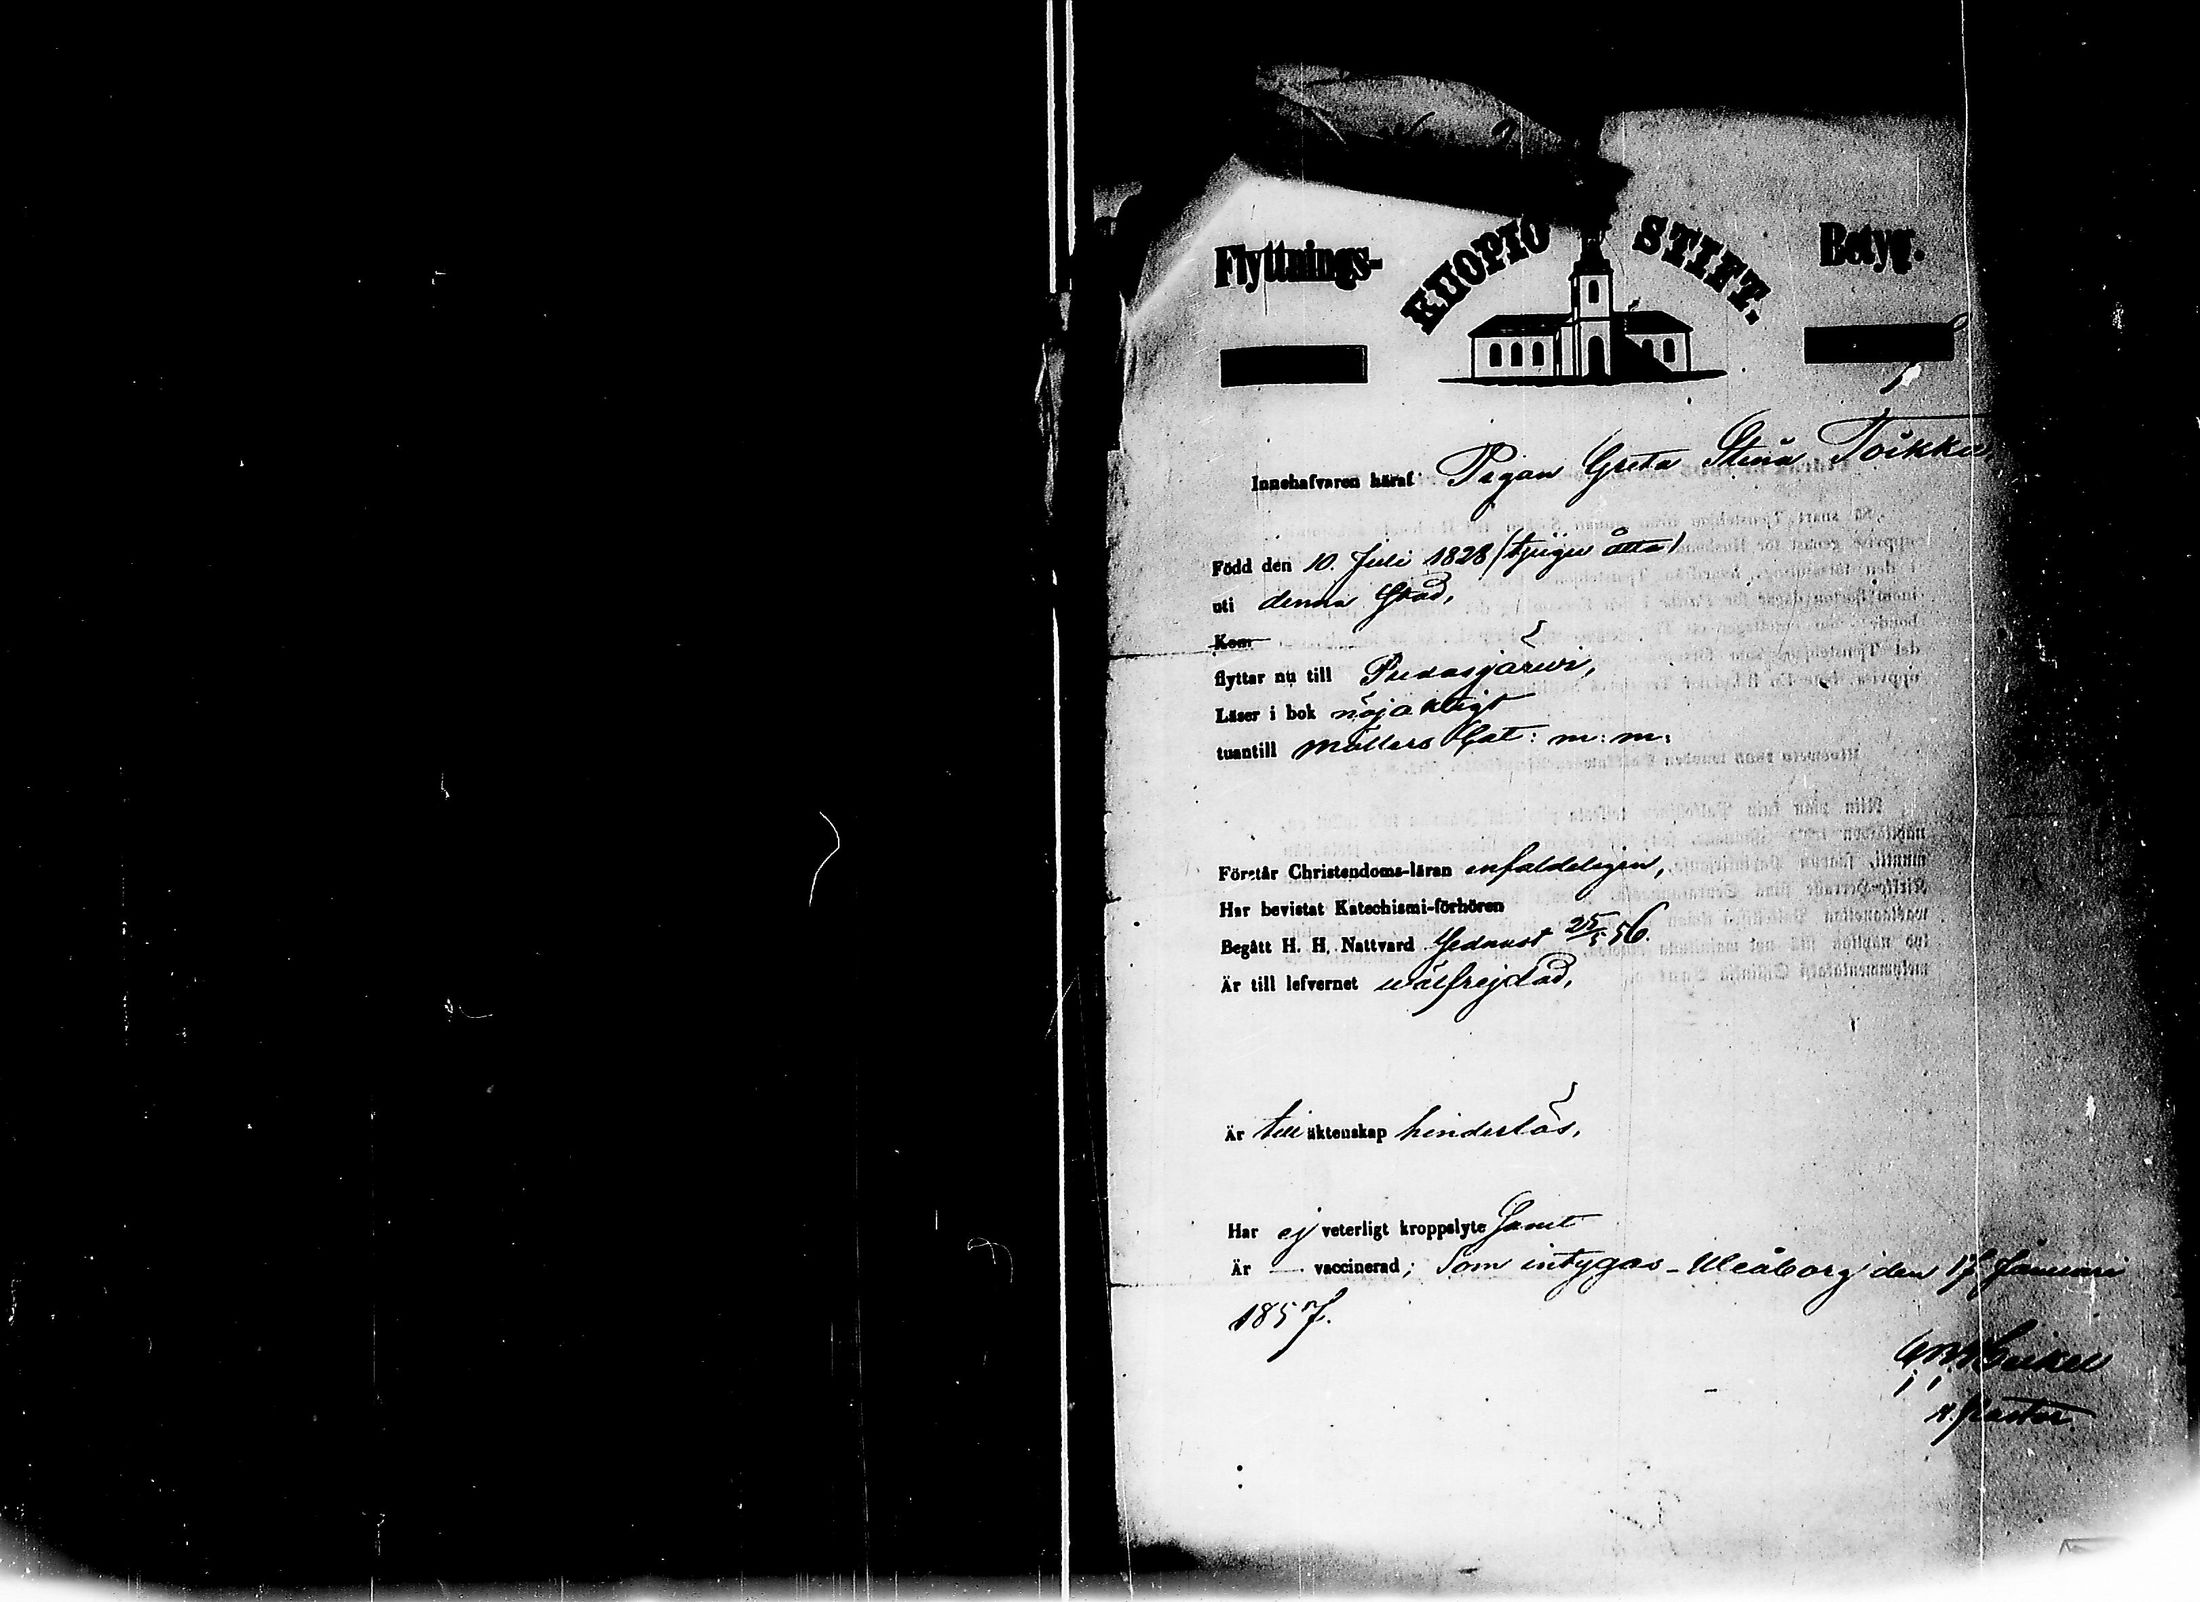 Flyttnings- KUOPIO STIFT. Betyg.
Innehafvaren häraf Pigan Greta Stina Toikka
Född den 10. Juli 1828 (tjugu åtta)
uti denna Stad,
Kom
flyttar nu till Pudasjärwi,
Läser i bok nöjaktigt
tuantill Möllers Cat: m: m:
Förstår Christendoms-läran enfaldeligen,
Har bevistat Katechismi-förhören
Begått H. H. Nattvard sednast 25/5 56.
Är till lefvernet wälfrejdad,
Är till äktenskap hinderlös,
Har ej veterligt kroppslyte samt
Är — vaccinerad; Som intygas - Uleåborg den 17 Januari
1857.